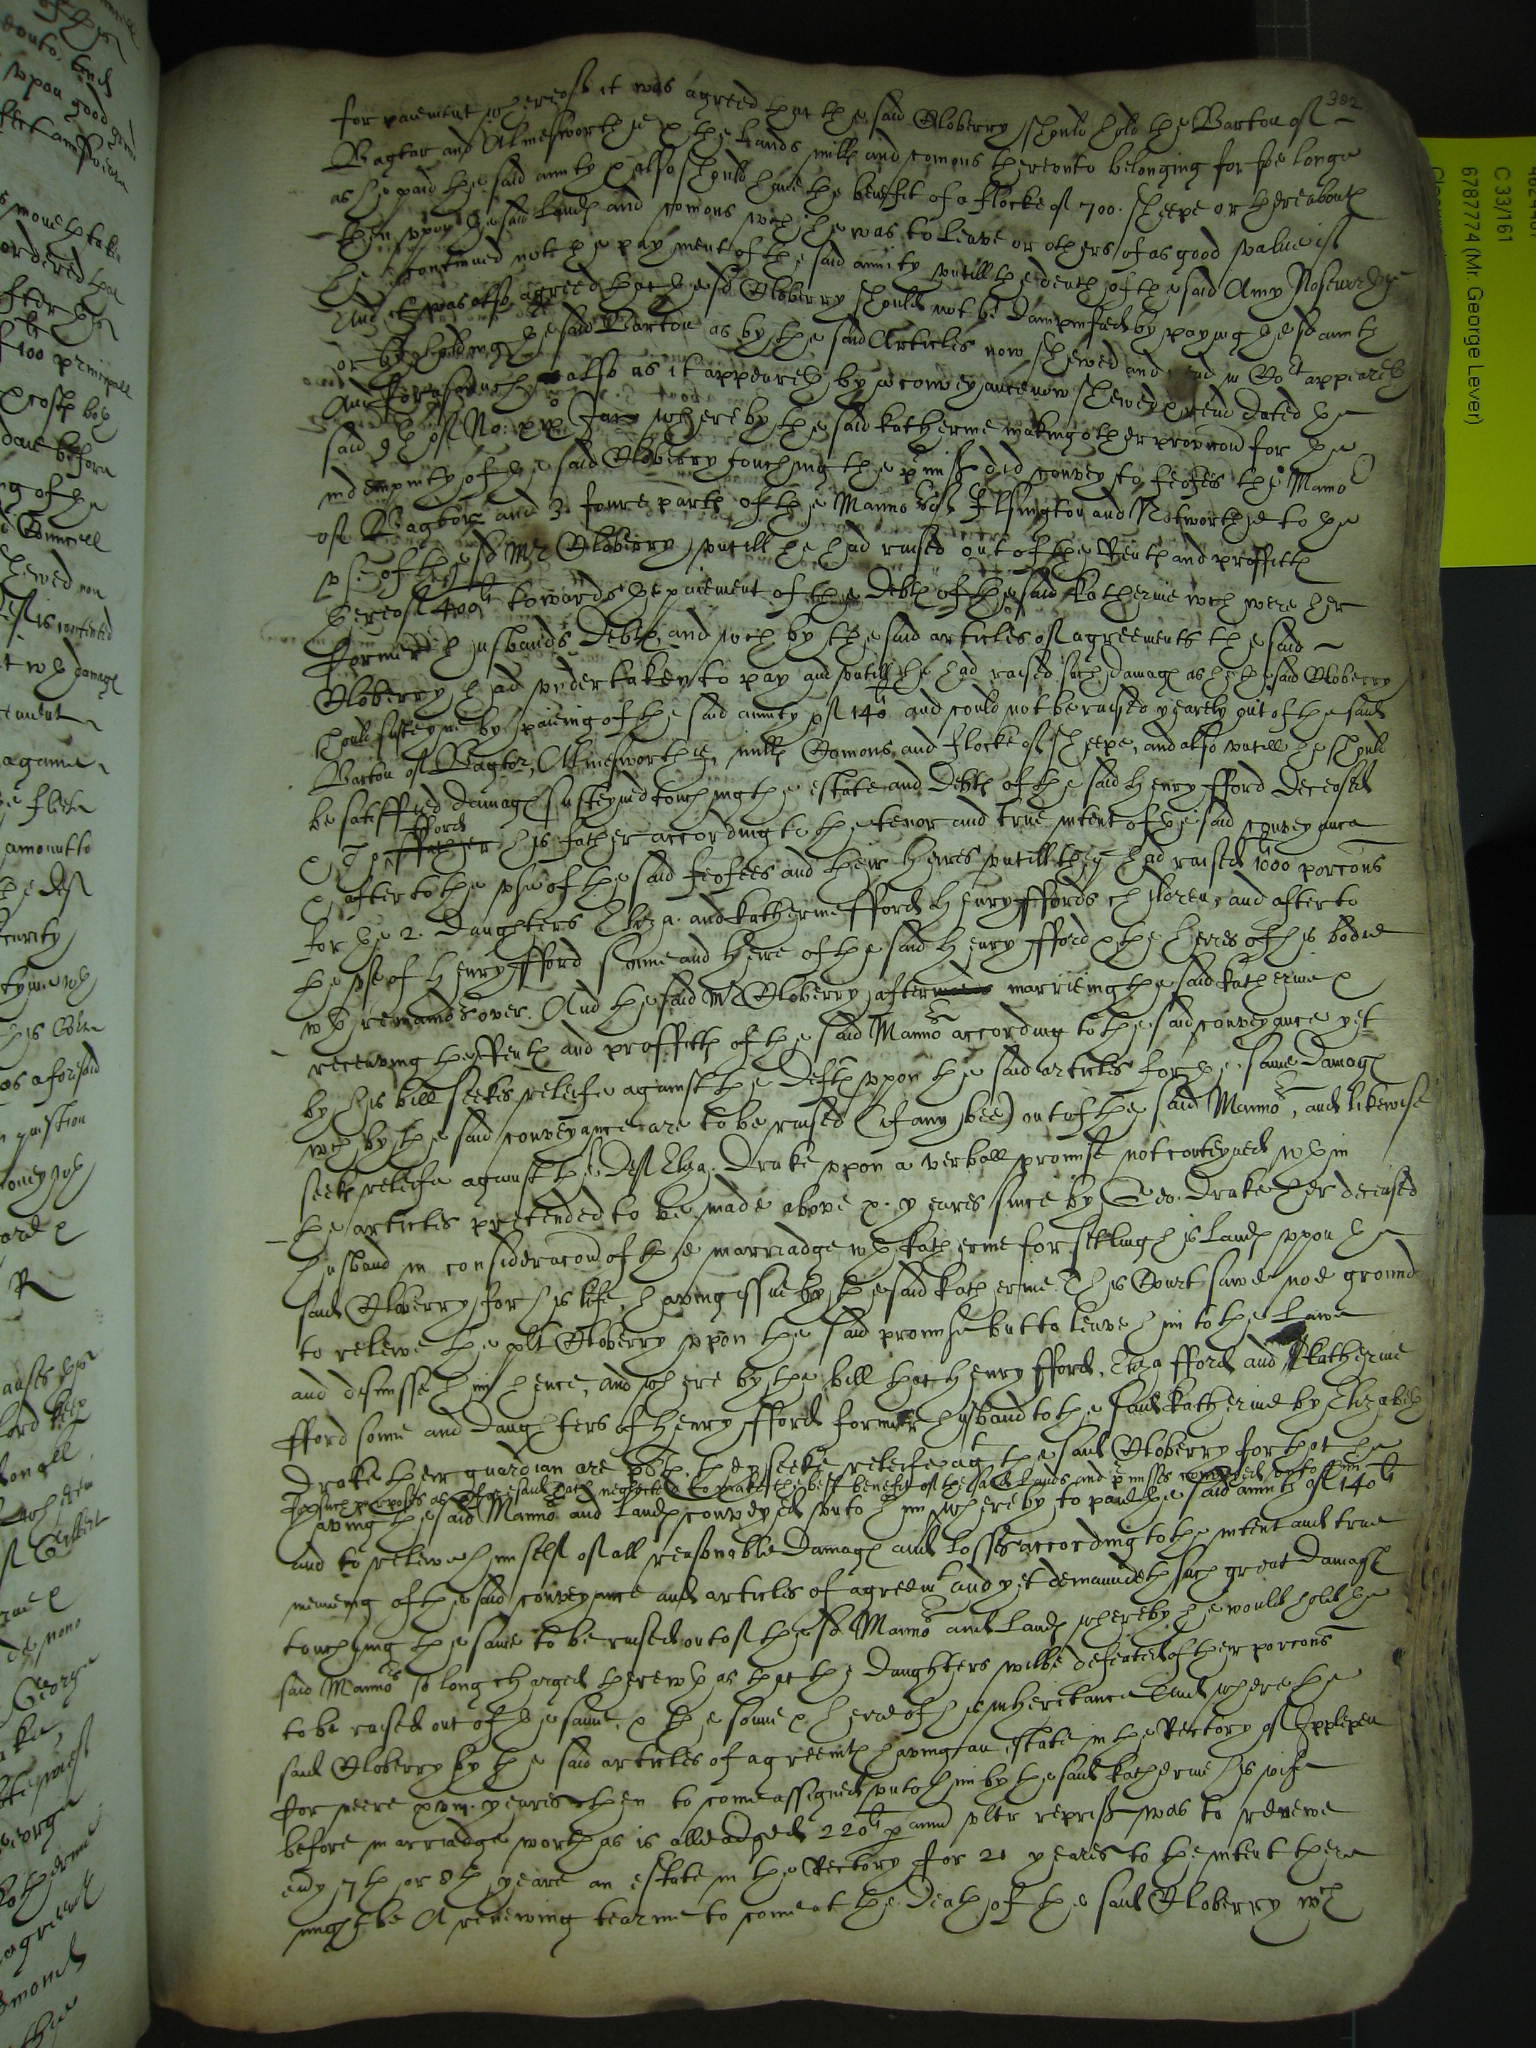 302
for paiement whereof it was agreed that the said Cloberry should hold the Barton of
Bagtor and Almesworthye & the Lands mills and comons thereunto belonging for soe longe
as he paid the said annity & also should have the benefit of a flocke of 700. sheepe or thereabouts
then upon the said Lands and comons wch he was to leave or others of as good value if
he continued not the payment of the said annity untill the death of the said Amy Roseworthye
And it was also agreed that the sd Cloberry should not be dampnified by paying the sd annity
or by holding the said Barton as by the said Articles now shewed and read in Cort appeareth
And forasmuch also as it appeareth by a conveyance now shewed & read dated the
said 9th of No: xx Jac whereby the said Katherine making other provision for the
indempnity of the said Cloberry touching the pmiss did convey to feofes the Mano
of Bagtor and 3. foure parts of the Manno of Ilsington and to the
use of the sd Mr Cloberry untill he had raised out of the Rents and proffitts
thereof 400li towards the paiement of the Debts of the said Katherine wch were her
former husbands Debts, and wch by the said articles of agreements the said
Cloberry had undertaken to pay and untill he had raised such Damags as he the said Cloberry
should susteyne by paieing of the said annity of 140li and could not be raised yearely out of the said
Barton of Bagtor, Almesworthie, mills Comons, and flocke of sheepe, and also untill he should
be satisfied damags susteyned touching the estate and Debts of the said Henry fford deceased
fford
his father according to the tenor and true intent of the said conveyance
& after to the use of the said feofees and their heires untill they had raised 1000li porcons
for the 2. Daughters Eliza. and Katherine fford Henry ffords children, and after to
the use of Henry fford sonne and heire of the said Henry fford & the heires of his bodie
wth remainders over. And the said Mr Cloberry after marrieing the said Katherine &
receiving the Rents and proffitts of the said Mannors according to the said conveyance yet
by his bill seekes releife against the Defts upon the said articles for the same Damags
wch by the said conveyance are to be raised (if any bee) out of the said Mannors, and likewise
seeks releife against the Deft Eliza. Drake upon a verball promise not conteyned wthin
the articles pretended to be made above x. yeares since by Geo. Drake her deceased
husband in consideracon of the marriadge wth Katherine for setling his Lands upon the
said Cloberry for his life, having issue by the said Katherine. This Court sawe noe ground
to releive the plt Cloberry upon the said promise but to leave him to the Lawe
and dismisse him hence, and where by the bill that Henry fford, Eliza fford and Katherine
fford sonne and daughters of Henry fford former husband to the said Katherine by Elizabeth
Drake their guardian are plts, they seeke releife agt the said Cloberry for that he
for such purposes as aforesaid hath neglected to make the best benefit of the said Lands and pmisses conveyed unto him
having the said Mannors and Lands conveyed unto him whereby to paie the said annity of 140li
and to releive himself of all reasonable Damags and losses according to the intent and true
meaning of the said conveyance and articles of agreemt and yet demaundeth such great damags
touching the same to be raised out of the sd Mannors and Lands whereby he would hold the
said Mannors so long charged therewth as that the Daughters wilbe defeated of their porcons
to be raised out of the same, & the sonne & heire of his inheritance And where the
said Cloberry by the said articles of agreemts having an estate in the Rectory of Ipplepen
for neere xviii. yeares then to come assigned unto him by the said Katherine his wife
before marriadge worth as is alleadged 220li p ann ultr repriss was to renewe
evy 7th or 8th yeare an estate in the Rectory for 21 yeares to the intent there
might be A renewing tearme to come at the death of the said Cloberry wch
C 33/161
6787774 (Mr. George Lever)